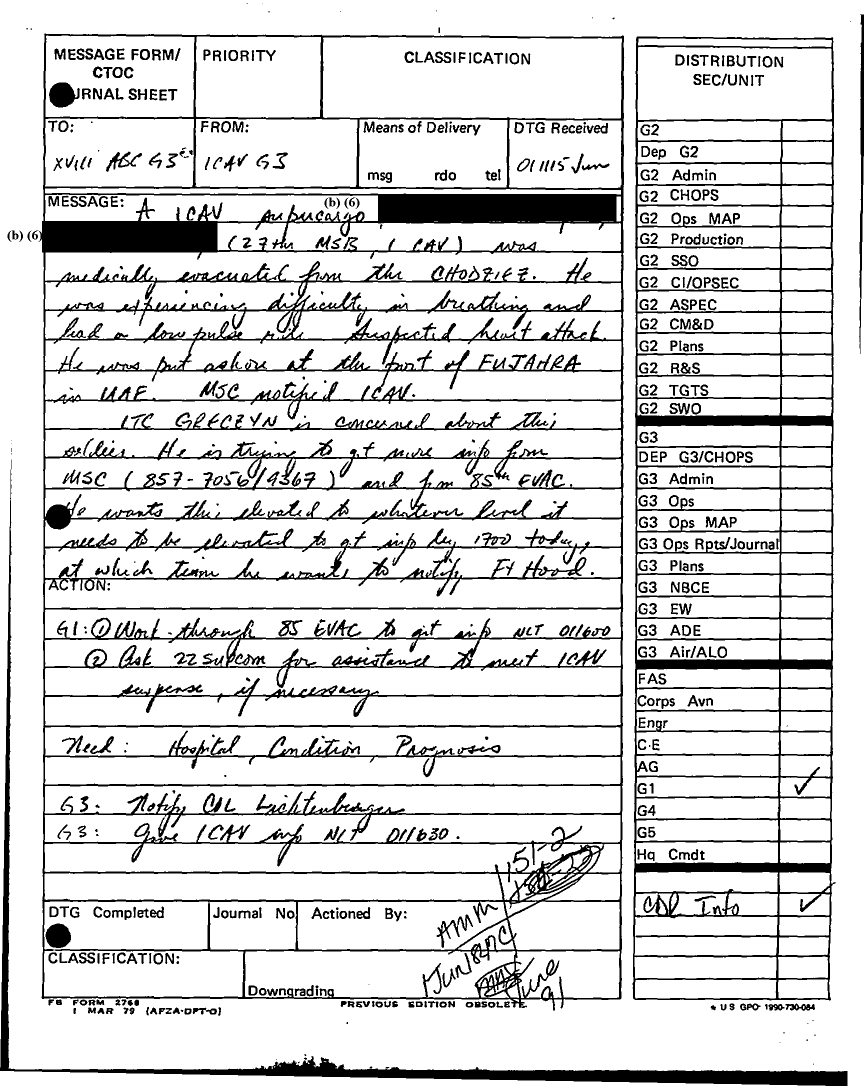 MESSAGE FORM/
CTOC
RNAL SHEET
PRIORITY
CLASSIFICATION
TO:
XVIII ABC G3
FROM:
1CAV G3
Means of Delivery
msg rdo tel
DTG Received
011115 Jun
MESSAGE: A 1CAV supercargo (b) (6)
(b) (6) (27th MSB, 1 CAV) was
medically evacuated from the CHODZIEZ. He
was experiencing difficulty in breathing and
had a low pulse rate. Suspected heart attack.
He was put ashore at the port of FUJAHRA
in UAE. MSC notified 1CAV.
LTC GRECZYN is concerned about this
soldier. He is trying to get more info from
MSC (857-7056/4367) and fm 85th EVAC.
He wants this elevated to whatever level it
needs to be elevated to gt info by 1700 today,
at which team he wants to notify Ft Hood.
ACTION:
G1: ① Work through 85 EVAC to get info NLT 011600
② Ask 22 Supcom for assistance to meet 1CAV
suspense, if necessary
Need: Hospital, Condition, Prognosis
G3: Notify COL Lichtenberger
G3: Give 1CAV info NLT 011630.
AMM
151-2
June
91
DTG Completed
Journal No.
Actioned By:
CLASSIFICATION:
Downgrading
FB FORM 2768
1 MAR 79 (AFZA-DPT-O)
PREVIOUS EDITION OBSOLETE
* U S GPO 1990-730-064
DISTRIBUTION
SEC/UNIT
G2
Dep G2
G2 Admin
G2 CHOPS
G2 Ops MAP
G2 Production
G2 SSO
G2 CI/OPSEC
G2 ASPEC
G2 CM&D
G2 Plans
G2 R&S
G2 TGTS
G2 SWO
G3
DEP G3/CHOPS
G3 Admin
G3 Ops
G3 Ops MAP
G3 Ops Rpts/Journal
G3 Plans
G3 NBCE
G3 EW
G3 ADE
G3 Air/ALO
FAS
Corps Avn
Engr
C-E
AG
G1 ✓
G4
G5
Hq Cmdt
CDR Info ✓